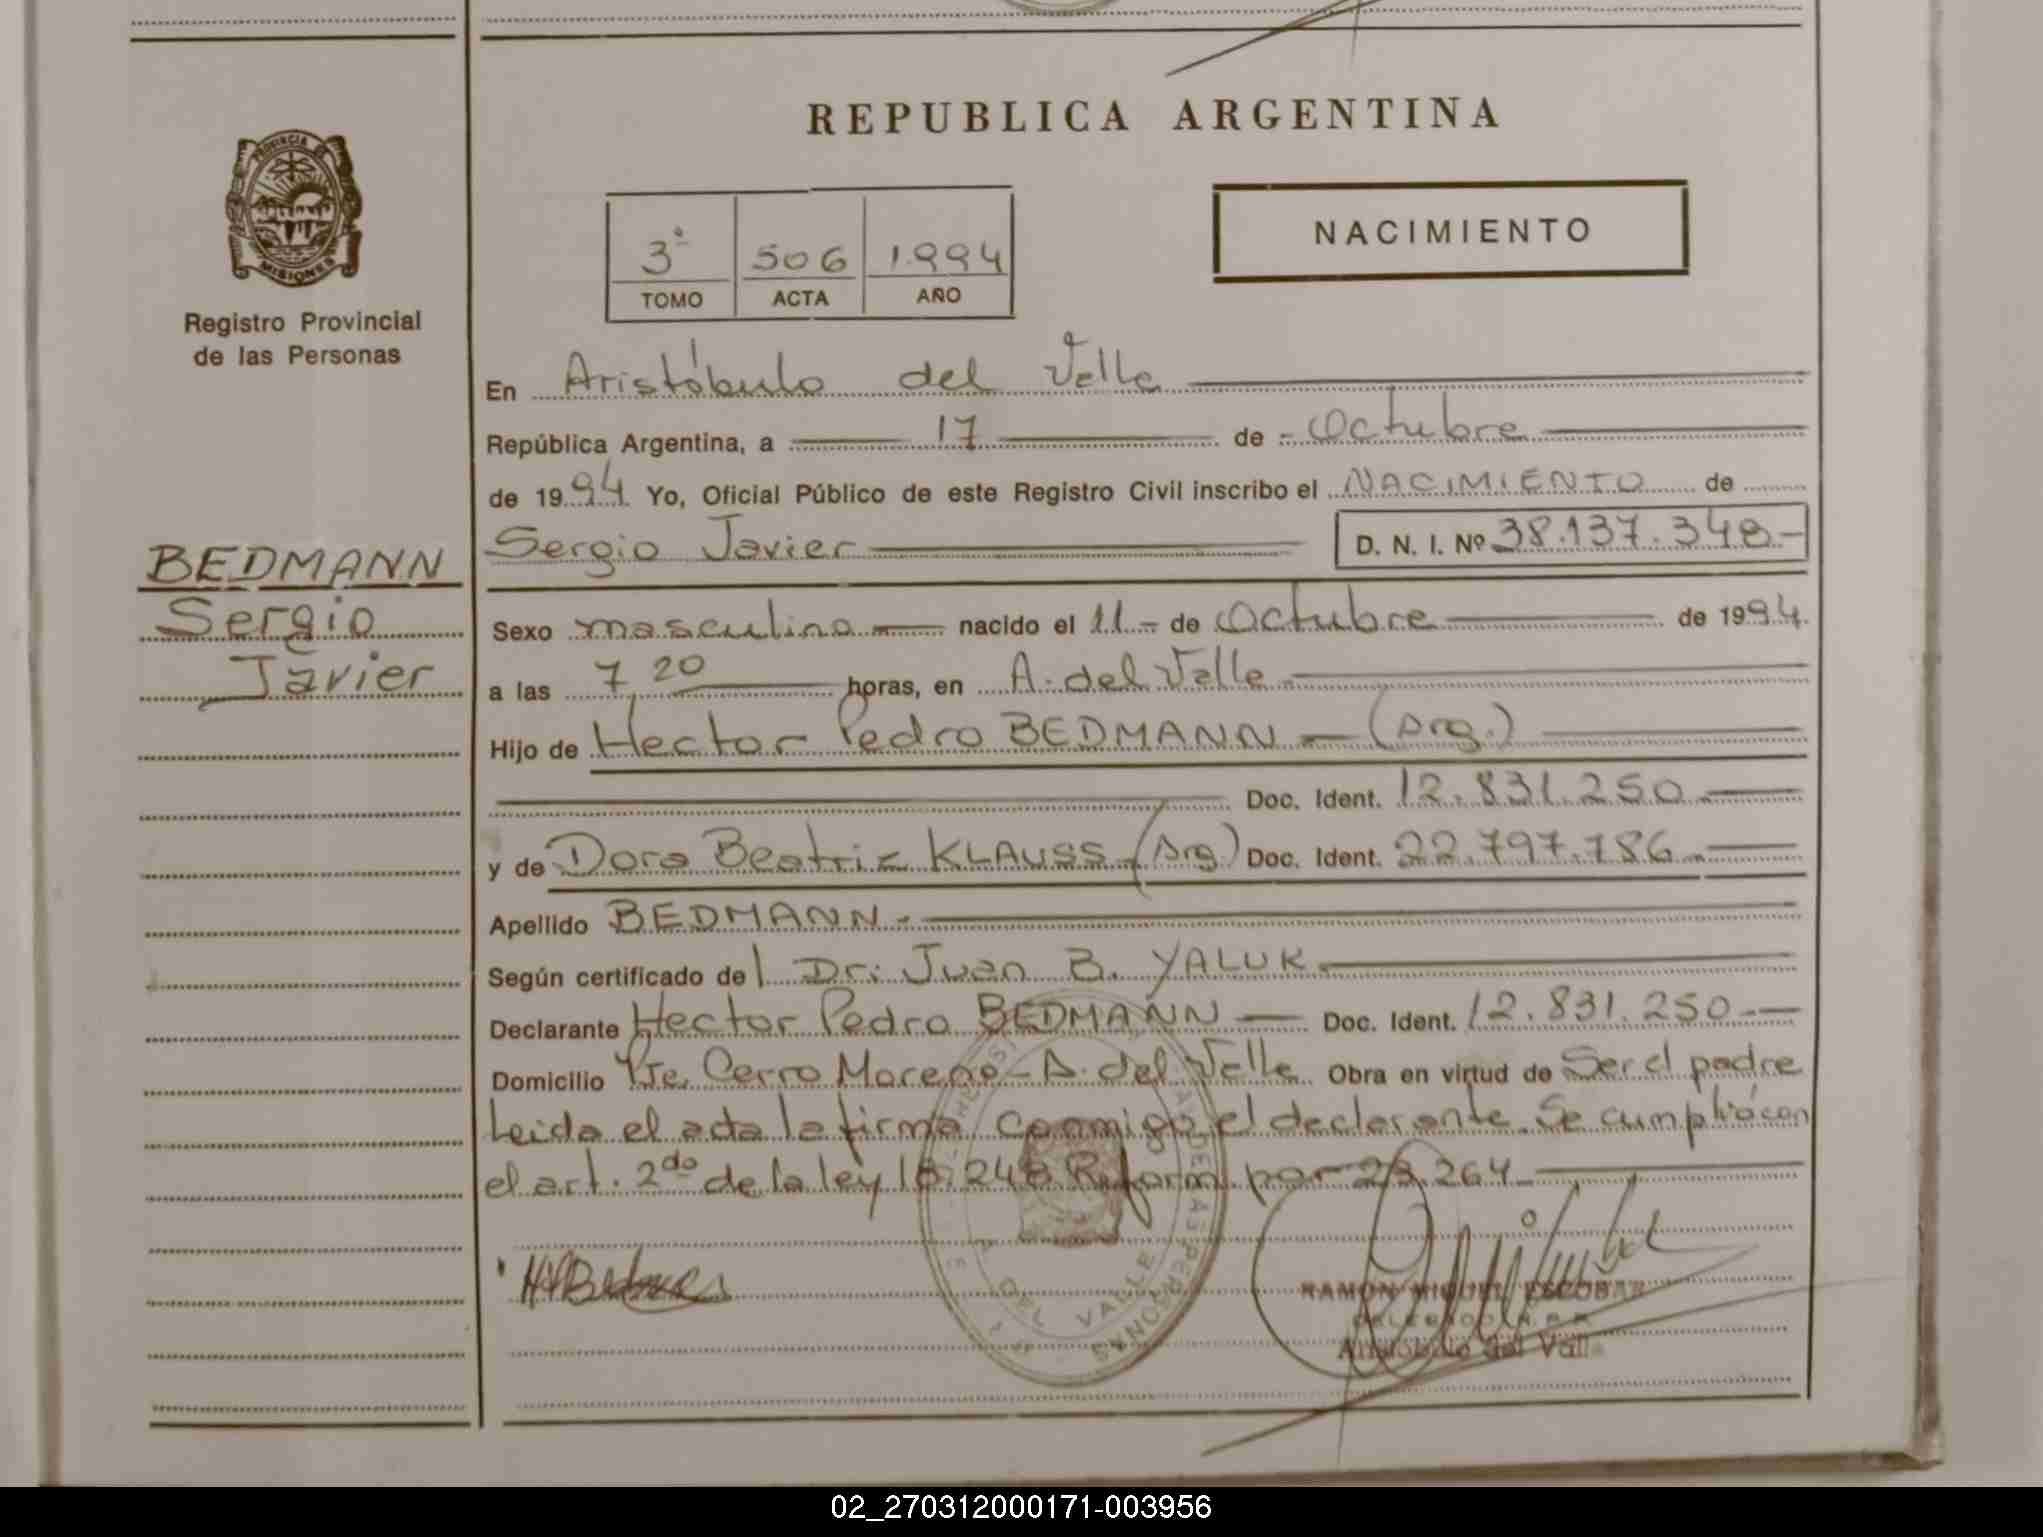 REPUBLICA ARGENTINA
PROVINCIA DE
MISIONES
Registro Provincial
de las Personas
3º 506 1.994
TOMO ACTA AÑO
NACIMIENTO
En Aristóbulo del Valle
República Argentina, a 17 de Octubre
de 1994 Yo, Oficial Público de este Registro Civil inscribo el NACIMIENTO de
Sergio Javier D. N. I. Nº 38.137.348.-
BEDMANN
Sergio
Javier
Sexo masculino nacido el 11 - de Octubre de 1994.
a las 7,20 horas, en A. del Valle
Hijo de Hector Pedro BEDMANN - (Arg.)
Doc. Ident. 12.831.250
y de Dora Beatriz KLAUSS (Arg.) Doc. Ident. 22.797.786
Apellido BEDMANN.-
Según certificado del Dr. Juan B. YALUK
Declarante Hector Pedro BEDMANN Doc. Ident. 12.831.250.-
Domicilio Pje. Cerro Moreno - A. del Valle Obra en virtud de Ser el padre
Leida el acta la firma conmigo el declarante. Se cumplió con
el art. 2do de la ley 18.248 Reform. por 23.264
A DEL VALLE
PERSONAS
RAMON MIGUEL ESCOBAR
Aristóbulo del Valle
02_270312000171-003956